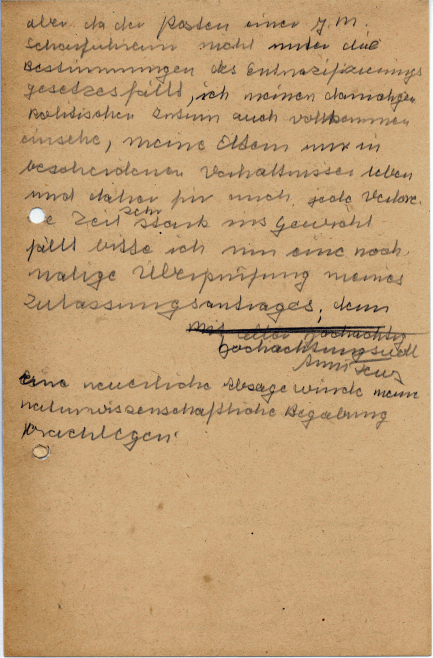 aber da der Posten einer J.M.
Scharführerin nicht unter die
Bestimmungen des Entnazifizierungs
gesetzes fällt, ich meinen damaligen
politischen Irrtum auch vollkommen
einsehe, meine Eltern nur in
bescheidenen Verhältnissen leben
und daher für mich jede verlore
ne Zeit sehr stark ins Gewicht
fällt bitte ich um eine noch
malige Überprüfung meines
Zulassungsantrages, denn
Mit aller Hochachtg
Hochachtungsvoll
Anni
eine neuerliche Absage würde meine
naturwissenschaftliche Begabung
brachlegen.